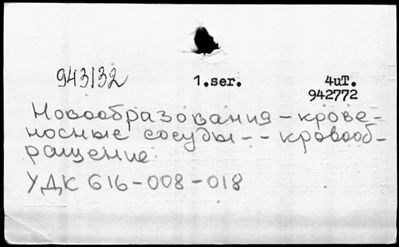 943132 1.ser. 4uT.
942772
Новообразования - крове-
носные сосуды -- кровооб-
ращение.
УДК 616-008-018